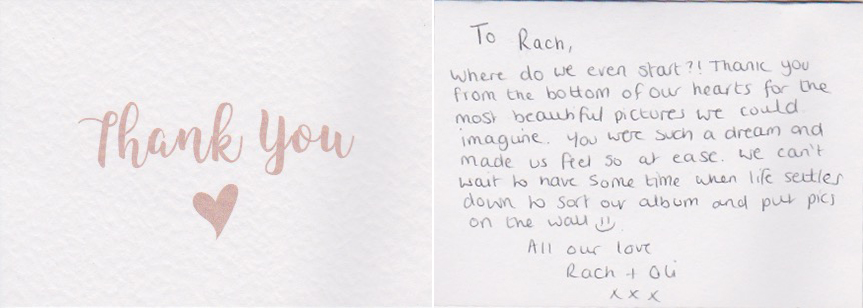 Thank You
To Rach,
Where do we even start?! Thank you
from the bottom of our hearts for the
most beautiful pictures we could
imagine. You were such a dream and
made us feel so at ease. We can't
wait to have some time when life settles
down to sort our album and put pics
on the wall
All our love
Rach + Oli
x x x